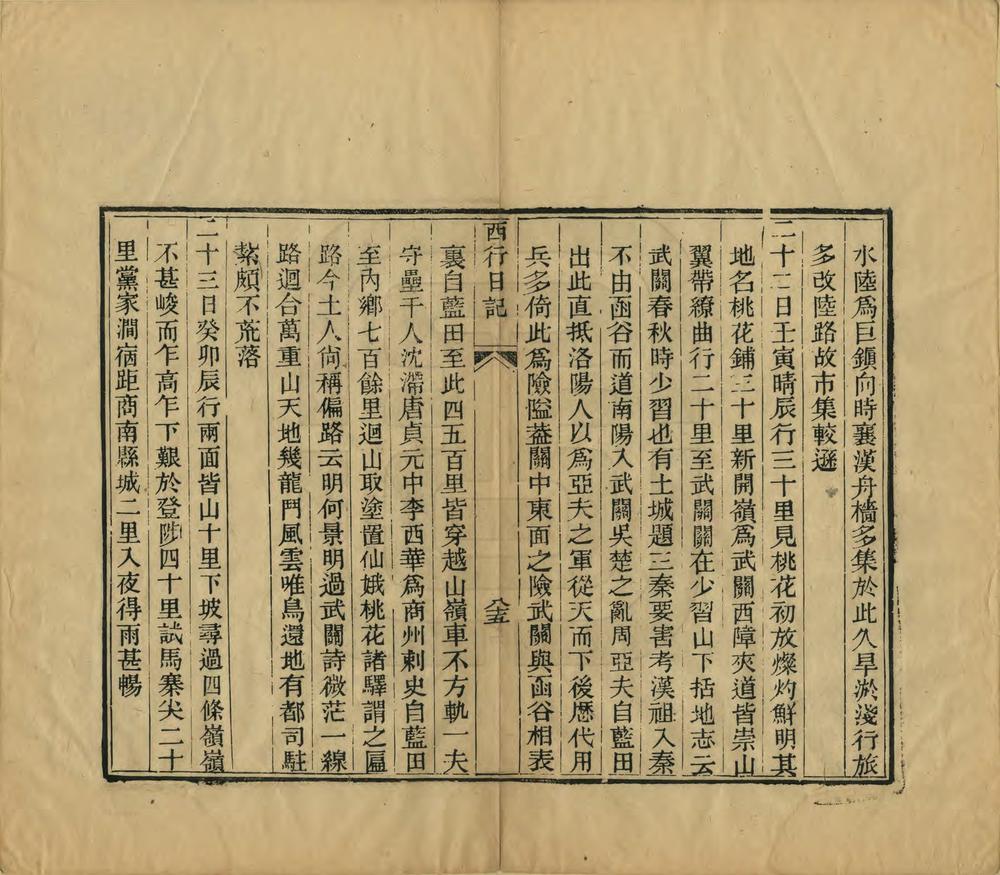 水陸爲巨鎭向時襄漢舟檣多集於此久旱淤淺行旅
多改陸路故市集較遜
二十二日壬寅晴辰行三十里見桃花初放燦灼鮮明其
地名桃花鋪三十里新開嶺爲武關西障夾道皆崇山
翼帶繚曲行二十里至武關關在少習山下括地志云
武關春秋時少習也有土城題三秦要害考漢祖入秦
不由函谷而道南陽入武關吳楚之亂周亞夫自藍田
出此直抵洛陽人以爲亞夫之軍從天而下後歷代用
兵多倚此爲險隘葢關中東面之險武關與函谷相表
西行日記
八五
裏自藍田至此四五百里皆穿越山嶺車不方軌一夫
守壘千人沈滯唐貞元中李西華爲商州刺史自藍田
至內鄉七百餘里迴山取塗置仙娥桃花諸驛謂之匾
路今土人尙稱偏路云明何景明過武關詩微茫一線
路迴合萬重山天地幾龍鬥風雲唯鳥還地有都司駐
紮頗不荒落
二十三日癸卯辰行兩面皆山十里下坡尋過四條嶺嶺
不甚峻而乍高乍下艱於登陟四十里試馬寨尖二十
里黨家澗宿距商南縣城二里入夜得雨甚暢